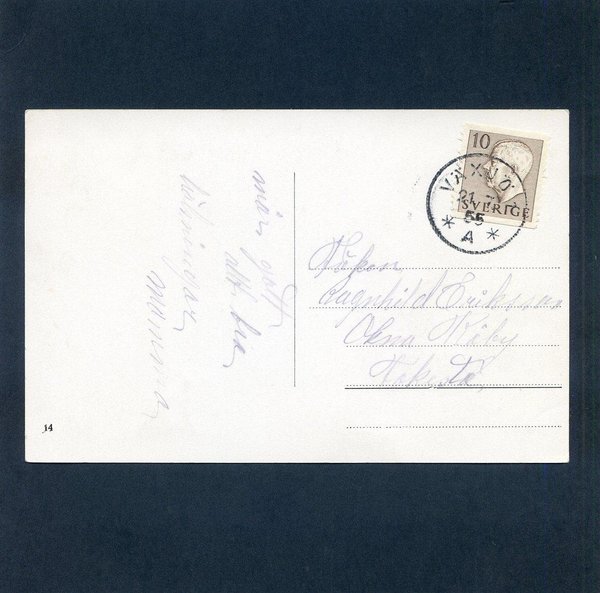 10
SVERIGE
VÄXJÖ
21
55
* A *
mår gott
allt bra
hälsningar
mamma
Fröken
Ragnhild Eriksson
14